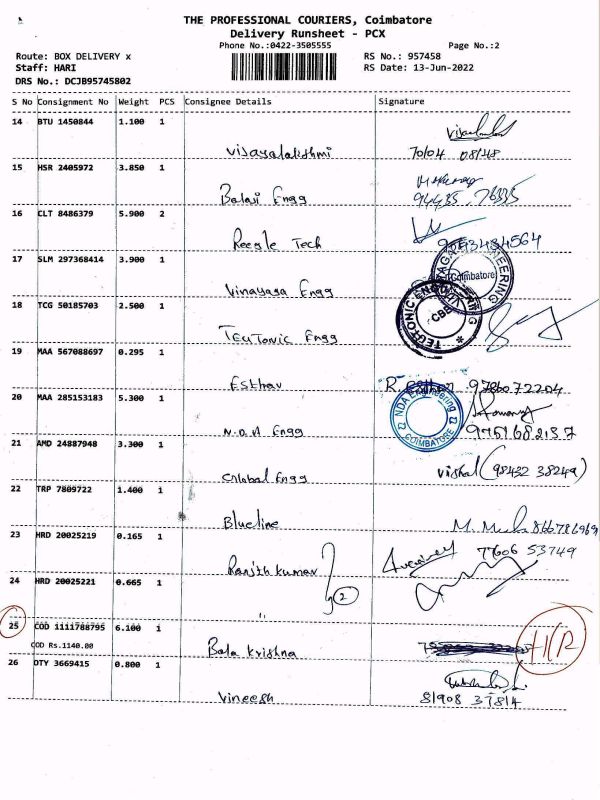 THE PROFESSIONAL COURIERS, Coimbatore
Delivery Runsheet - PCX
Phone No.:0422-3505555 Page No.:2
Route: BOX DELIVERY x RS No.: 957458
Staff: HARI RS Date: 13-Jun-2022
DRS No.: DCJB95745802
S No Consignment No Weight PCS Consignee Details Signature
14 BTU 1450844 1.100 1
Vijayalakshmi 70104 08148
15 HSR 2405972 3.850 1
Balaji Engg 94435 76335
16 CLT 8486379 5.900 2
Reegle Tech
17 SLM 297368414 3.900 1
Coimbatore
Vinayaga Engg
18 TCG 50185703 2.500 1
TEUTONIC ENGINEERING
CBE
TEUTONIC Engg
19 MAA 567088697 0.295 1
Esthar 9786072204
20 MAA 285153183 5.300 1
NDA Engineering
COIMBATORE
N.D.A Engg 9751682137
21 AMD 24887948 3.300 1
Global Engg Vishal (98432 38249)
22 TRP 7809722 1.400 1
Blueline
23 HRD 20025219 0.165 1
Ranjith kumar 77606 53749
24 HRD 20025221 0.665 1
2
25 COD 1111788795 6.100 1
COD Rs.1140.00
Bala krishna
26 DTY 3669415 0.800 1
Vineesh 81908 37814